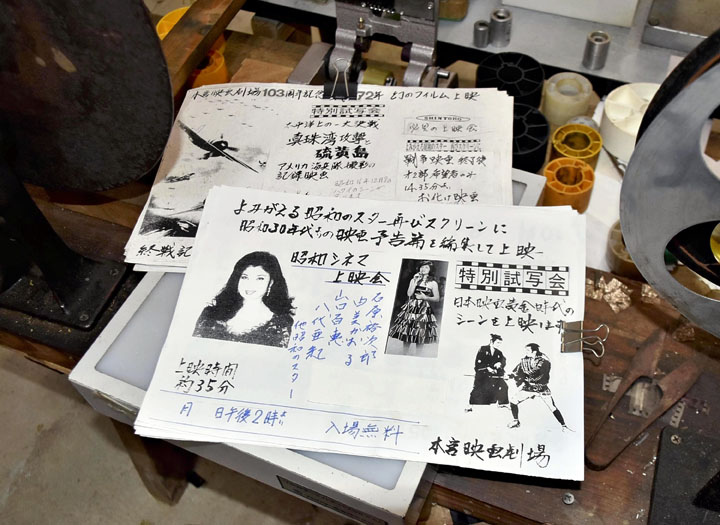 本宮映画劇場103周年記念 72年 幻のフィルム上映
特別試写会
太平洋上の一大決戦
真珠湾攻撃と
硫黄島
アメリカ海兵隊撮影の
記録映画
の上映会
戦争映画終了後
オ2部希望者のみ
14.35分より
お化け映画
終戦記
よみがえる昭和のスター再びスクリーンに
昭和30年代よりの映画予告篇を編集して上映
昭和シネマ
上映会
石原裕次郎
由美かおる
山口百恵
八代亜紀
他昭和のスター
特別試写会
日本映画黄金時代の
シーンを上映します
上映時間
約35分
月 日午後2時より
入場無料
本宮映画劇場